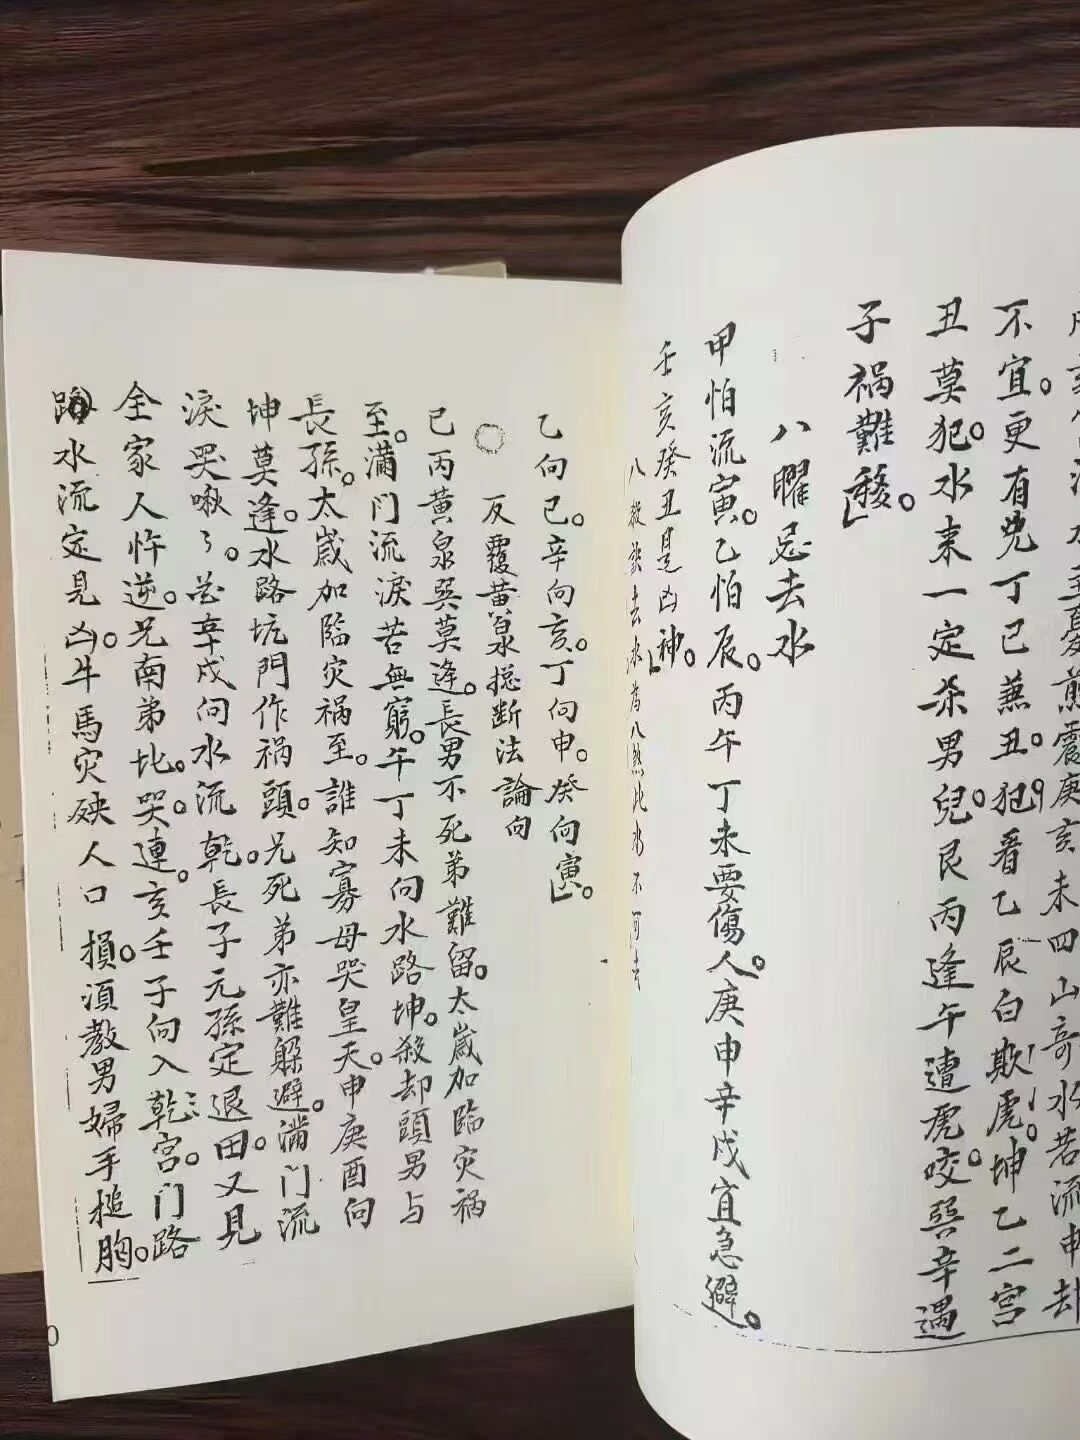 不宜。更有凶丁巳兼丑。犯着乙辰白欺虎。坤乙二宫
丑莫犯。水来一定杀男兒。艮丙逢午遭虎咬。巽辛遇
子祸難移。
八曜忌去水
甲怕流寅。乙怕辰。丙午丁未要傷人。庚申辛戌宜急避。
壬亥癸丑是凶神。
去水為八煞此水不可去
乙向巳。辛向亥。丁向申。癸向寅。
反覆黄泉捴断法論向
巳丙黄泉巽莫逢。長男不死弟難留。太歲加臨灾祸
至。滿门流淚苦無窮。午丁未向水路坤。殺却頭男与
長孫。太歲加臨灾祸至。誰知寡母哭皇天。申庚酉向
坤莫逢。水路坑門作祸頭。兄死弟亦難躲避。滿门流
淚哭啾々。辛戌向水流乾。長子元孫定退田。又見
全家人忤逆。兄南弟北。哭連。亥壬子向入乾宫。门路
路水流定見凶。牛馬灾殃人口損。須教男婦手搥胸。
0